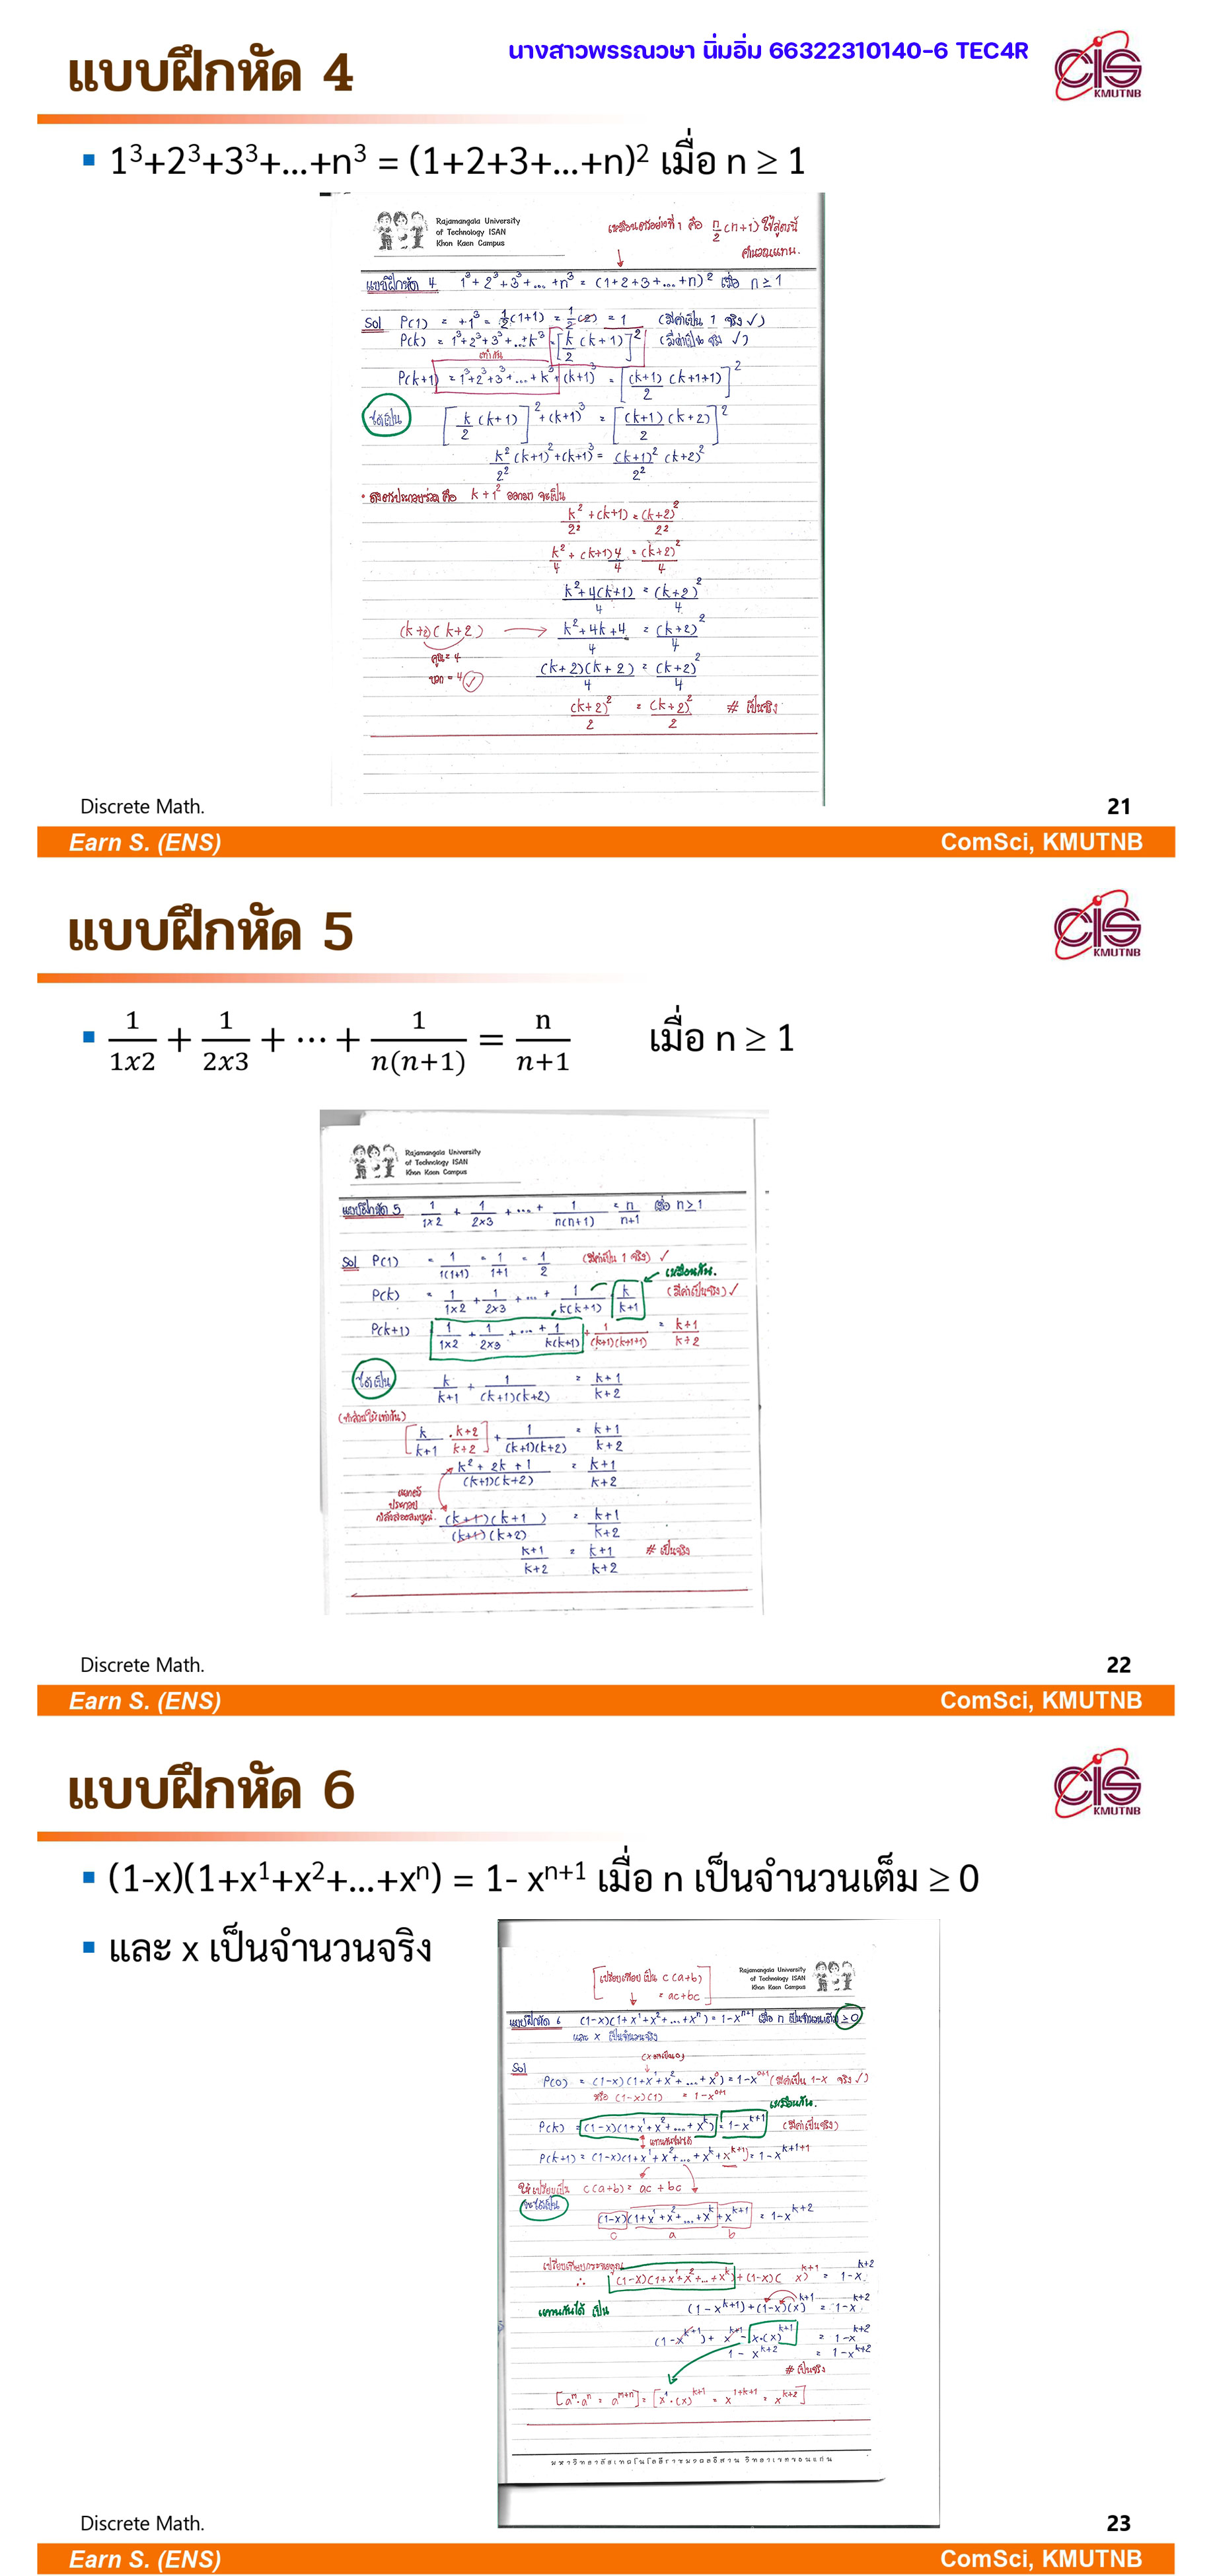 นางสาวพรรณวษา นิ่มอิ่ม 66322310140-6 TEC4R
แบบฝึกหัด 4
CIS KMUTNB
1³+2³+3³+...+n³ = (1+2+3+...+n)² เมื่อ n ≥ 1
Rajamangala University
of Technology ISAN
Khon Kaen Campus
เหมือนตัวอย่างที่ 1 คือ n/2 (n+1) ใช้สูตรนี้
คำนวณแทน.
แบบฝึกหัด 4 1³+2³+3³+...+n³ = (1+2+3+...+n)² เมื่อ n ≥ 1
Sol P(1) = +1³ = 1/2(1+1) = 1/2(2) = 1 (มีค่าเป็น 1 จริง ✓)
P(k) = 1³+2³+3³+...+k³ = [k/2 (k+1)]² (มีค่าเป็น จริง ✓)
เท่ากัน
P(k+1) = 1³+2³+3³+...+k³+(k+1)³ = [(k+1)/2 (k+1+1)]²
ได้เป็น [k/2 (k+1)]²+(k+1)³ = [(k+1)/2 (k+2)]²
k²/2² (k+1)²+(k+1)³ = (k+1)²/2² (k+2)²
• ดึงตัวประกอบร่วม คือ k+1² ออกมา จะเป็น
k²/2² + (k+1) = (k+2)²/2²
k²/4 + (k+1)4/4 = (k+2)²/4
k²+4(k+1)/4 = (k+2)²/4
(k+2)(k+2) → k²+4k+4/4 = (k+2)²/4
คูณ = 4
บวก = 4 ✓
(k+2)(k+2)/4 = (k+2)²/4
(k+2)²/2 = (k+2)²/2 # เป็นจริง
Discrete Math. 21
Earn S. (ENS) ComSci, KMUTNB
แบบฝึกหัด 5
CIS KMUTNB
1/1x2 + 1/2x3 + ⋯ + 1/n(n+1) = n/n+1 เมื่อ n ≥ 1
Rajamangala University
of Technology ISAN
Khon Kaen Campus
แบบฝึกหัด 5 1/1x2 + 1/2x3 + ... + 1/n(n+1) = n/n+1 เมื่อ n ≥ 1
Sol P(1) = 1/1(1+1) = 1/1+1 = 1/2 (มีค่าเป็น 1 จริง) ✓
เหมือนกัน.
P(k) = 1/1x2 + 1/2x3 + ... + 1/k(k+1) = k/k+1 (มีค่าเป็นจริง) ✓
P(k+1) 1/1x2 + 1/2x3 + ... + 1/k(k+1) + 1/(k+1)(k+1+1) = k+1/k+2
ได้เป็น k/k+1 + 1/(k+1)(k+2) = k+1/k+2
(ทำส่วนให้เท่ากัน)
[k/k+1 . k+2/k+2] + 1/(k+1)(k+2) = k+1/k+2
k² + 2k + 1/(k+1)(k+2) = k+1/k+2
แยกตัว
ประกอบ
กำลังสองสมบูรณ์. (k+1)(k+1)/(k+1)(k+2) = k+1/k+2
k+1/k+2 = k+1/k+2 # เป็นจริง
Discrete Math. 22
Earn S. (ENS) ComSci, KMUTNB
แบบฝึกหัด 6
CIS KMUTNB
(1-x)(1+x¹+x²+...+xⁿ) = 1- xⁿ⁺¹ เมื่อ n เป็นจำนวนเต็ม ≥ 0
และ x เป็นจำนวนจริง
[เปรียบเทียบ เป็น c(a+b)
= ac+bc]
Rajamangala University
of Technology ISAN
Khon Kaen Campus
แบบฝึกหัด 6 (1-x)(1+x¹+x²+...+xⁿ) = 1-xⁿ⁺¹ เมื่อ n เป็นจำนวนเต็ม ≥0
และ x เป็นจำนวนจริง
Sol
P(0) = (1-x)(1+x¹+x²+...+x⁰) = 1-x⁰⁺¹ (มีค่าเป็น 1-x จริง ✓)
หรือ (1-x)(1) = 1-x⁰⁺¹
เหมือนกัน.
P(k) = (1-x)(1+x¹+x²+...+xᵏ) = 1-xᵏ⁺¹ (มีค่าเป็นจริง)
แทนกันได้
P(k+1) = (1-x)(1+x¹+x²+...+xᵏ+xᵏ⁺¹) = 1-xᵏ⁺¹⁺¹
ให้เปรียบเป็น c(a+b) = ac + bc
จะได้เป็น
(1-x)(1+x¹+x²+...+xᵏ+xᵏ⁺¹) = 1-xᵏ⁺²
c a b
∴ (1-x)(1+x¹+x²+...+xᵏ)+(1-x)(x)ᵏ⁺¹ = 1-xᵏ⁺²
แทนกันได้ เป็น (1-xᵏ⁺¹)+(1-x)(x)ᵏ⁺¹ = 1-xᵏ⁺²
(1-xᵏ⁺¹)+ xᵏ⁺¹-x·(x)ᵏ⁺¹ = 1-xᵏ⁺²
1 - xᵏ⁺² = 1-xᵏ⁺²
# เป็นจริง
[aᵐ·aⁿ = aᵐ⁺ⁿ] = [x¹·(x)ᵏ⁺¹ = x¹⁺ᵏ⁺¹ = xᵏ⁺²]
มหาวิทยาลัยเทคโนโลยีราชมงคลอีสาน วิทยาเขตขอนแก่น
Discrete Math. 23
Earn S. (ENS) ComSci, KMUTNB